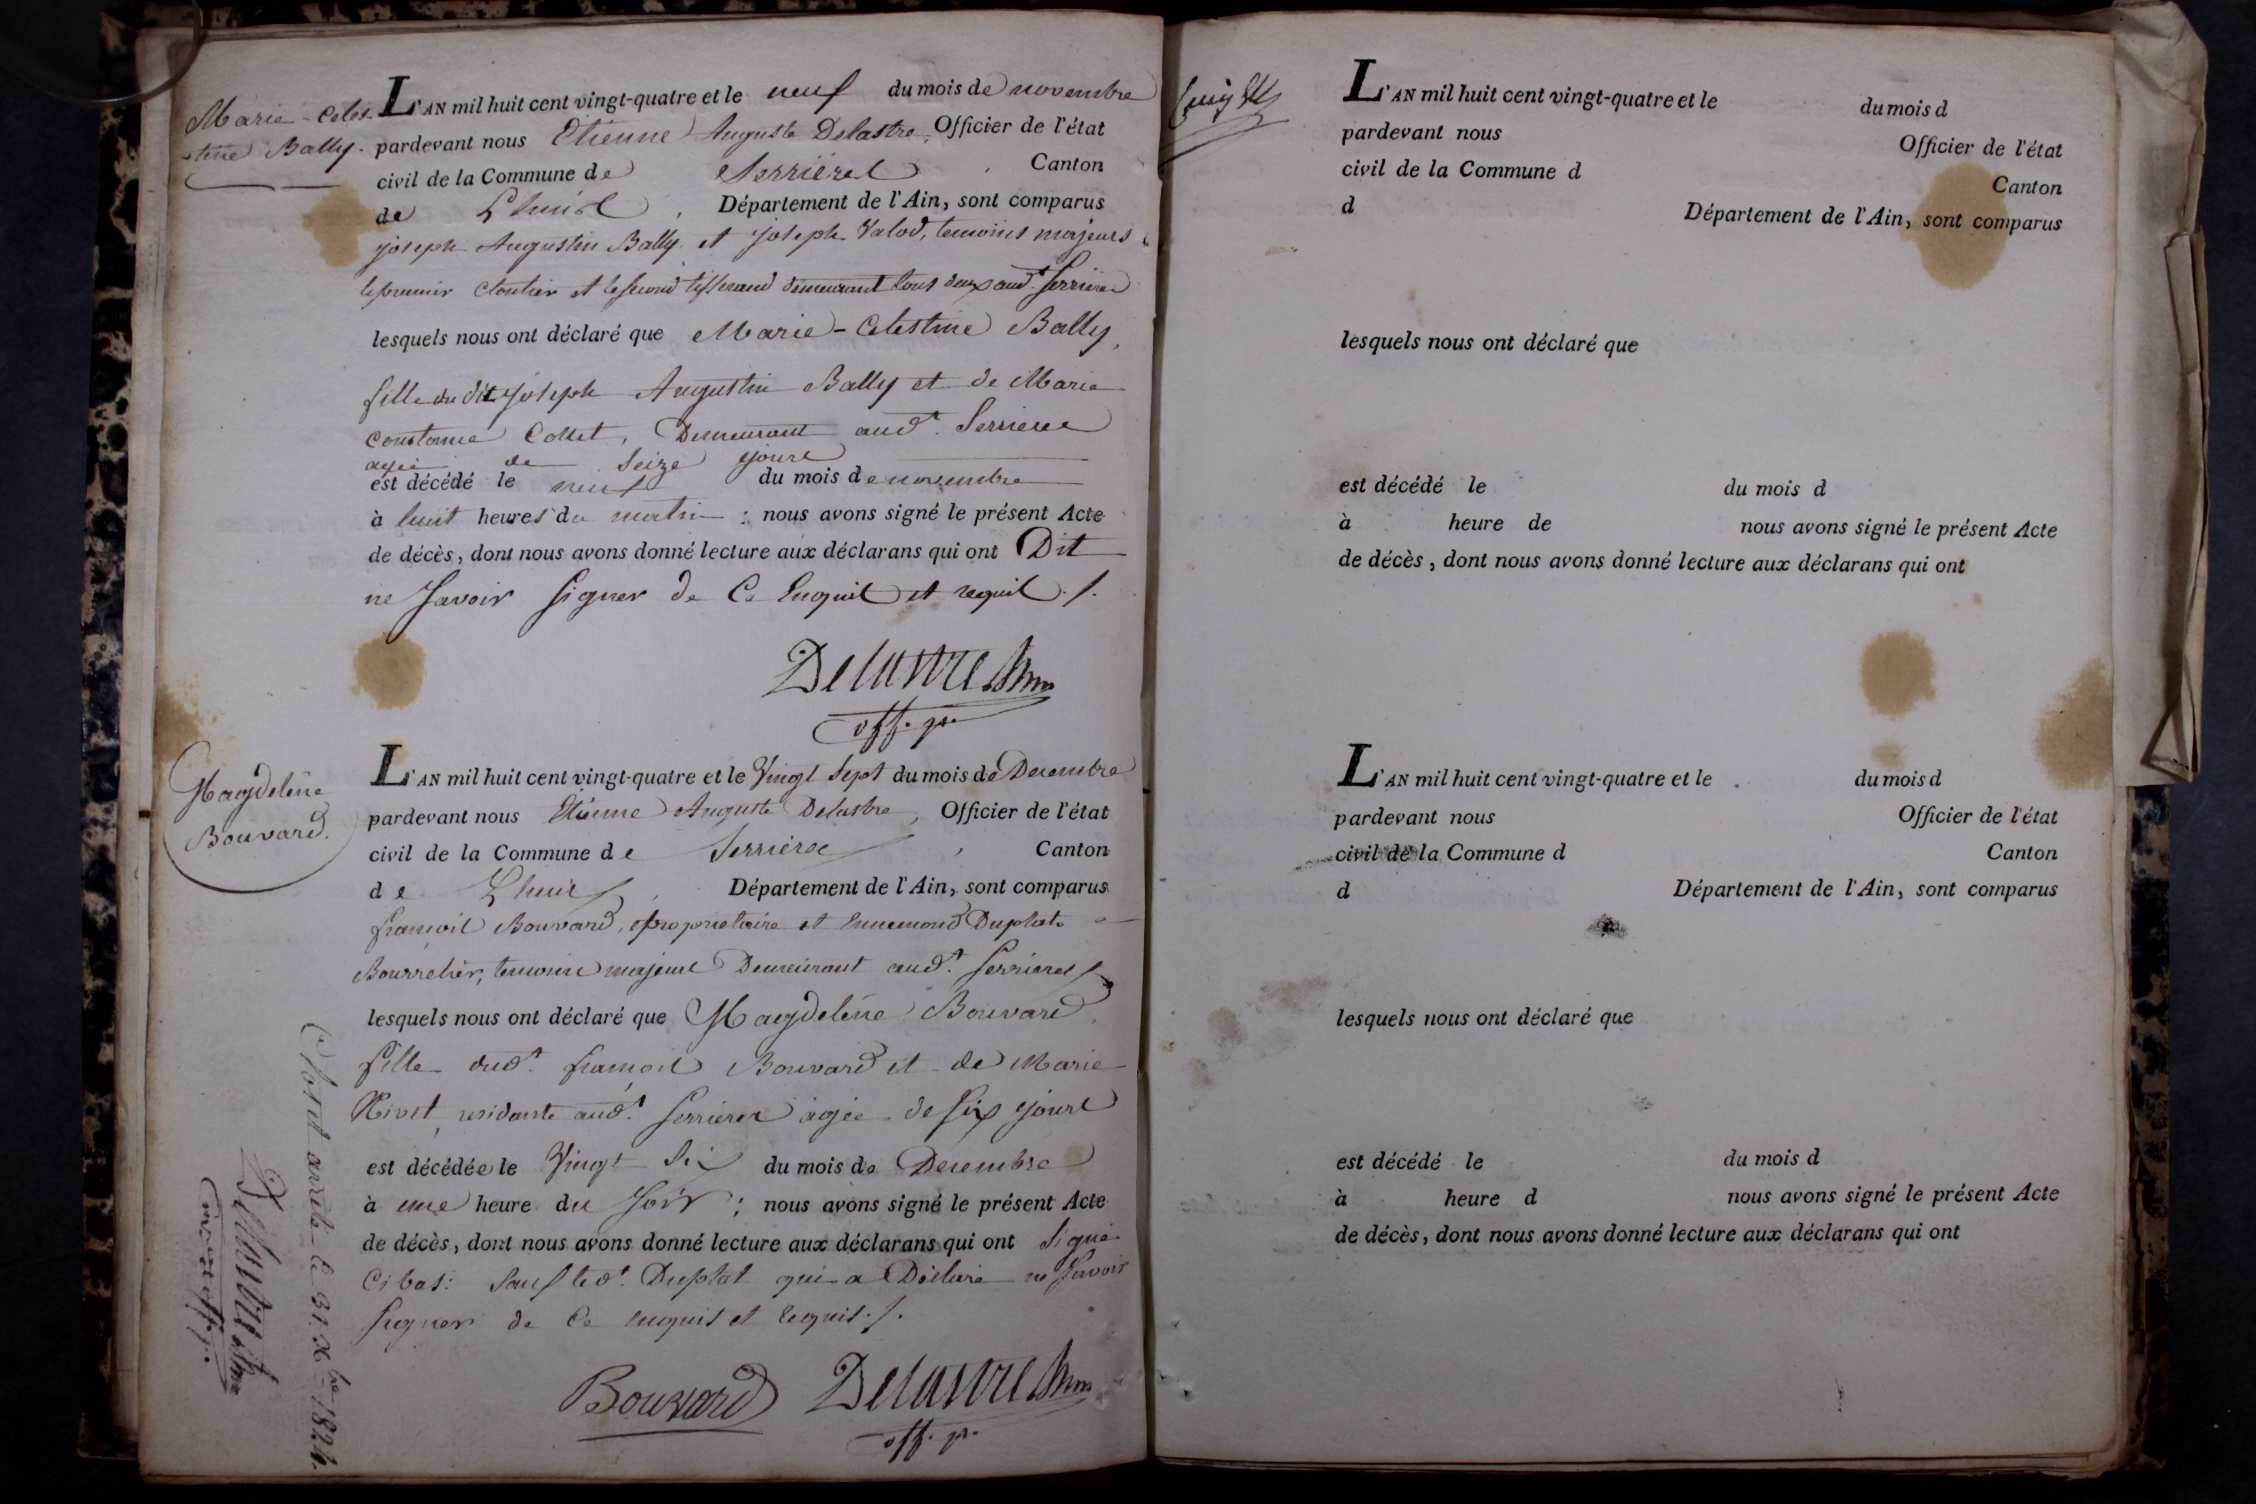 Marie-Celes
-tine Bally.
L'AN mil huit cent vingt-quatre et le neuf du mois de novembre
pardevant nous Etienne Auguste Delastre, Officier de l'état
civil de la Commune de Serrières, Canton
de Lhuis, Département de l'Ain, sont comparus
joseph Augustin Bally et joseph Valod, temoins majeurs
le premier cloutier et le second tisserand demeurant tous deux aud.t Serrieres
lesquels nous ont déclaré que Marie-Celestine Bally,
fille du dit joseph Augustin Bally et de Marie
constance Collet, Demeurant aud.t Serrieres
agée de Seize jours
est décédé le neuf du mois de novembre
à huit heures du matin; nous avons signé le présent Acte
de décès, dont nous avons donné lecture aux déclarans qui ont Dit
ne Savoir Signer de Ce Enquis et requis ./.
Delastre
off. p.
Magdeleine
Bouvard.
L'AN mil huit cent vingt-quatre et le Vingt Sept du mois de Decembre
pardevant nous Etienne Auguste Delastre, Officier de l'état
civil de la Commune de Serrières, Canton
de Lhuis, Département de l'Ain, sont comparus
francois Bouvard, propriétaire et Ennemond Duplat
Bourrelier, temoins majeurs Demeurant aud.t Serrieres
lesquels nous ont déclaré que Magdeleine Bouvard
fille dud.t francois Bouvard et de Marie
Rivet, residante aud.t Serrieres agée de Six jours
est décédée le Vingt Six du mois de Decembre
à une heure du Soir; nous avons signé le présent Acte
de décès, dont nous avons donné lecture aux déclarans qui ont Signé
Ci bas: Sauf led.t Duplat qui a Déclaré ne Savoir
Signer de Ce enquis et requis ./.
Bouvard Delastre
off. p.
Clos et arrêté le 31 Xbre 1824.
Delastre
L'AN mil huit cent vingt-quatre et le du mois d
pardevant nous Officier de l'état
civil de la Commune d Canton
d Département de l'Ain, sont comparus
lesquels nous ont déclaré que
est décédé le du mois d
à heure de nous avons signé le présent Acte
de décès, dont nous avons donné lecture aux déclarans qui ont
L'AN mil huit cent vingt-quatre et le du mois d
pardevant nous Officier de l'état
civil de la Commune d Canton
d Département de l'Ain, sont comparus
lesquels nous ont déclaré que
est décédé le du mois d
à heure d nous avons signé le présent Acte
de décès, dont nous avons donné lecture aux déclarans qui ont